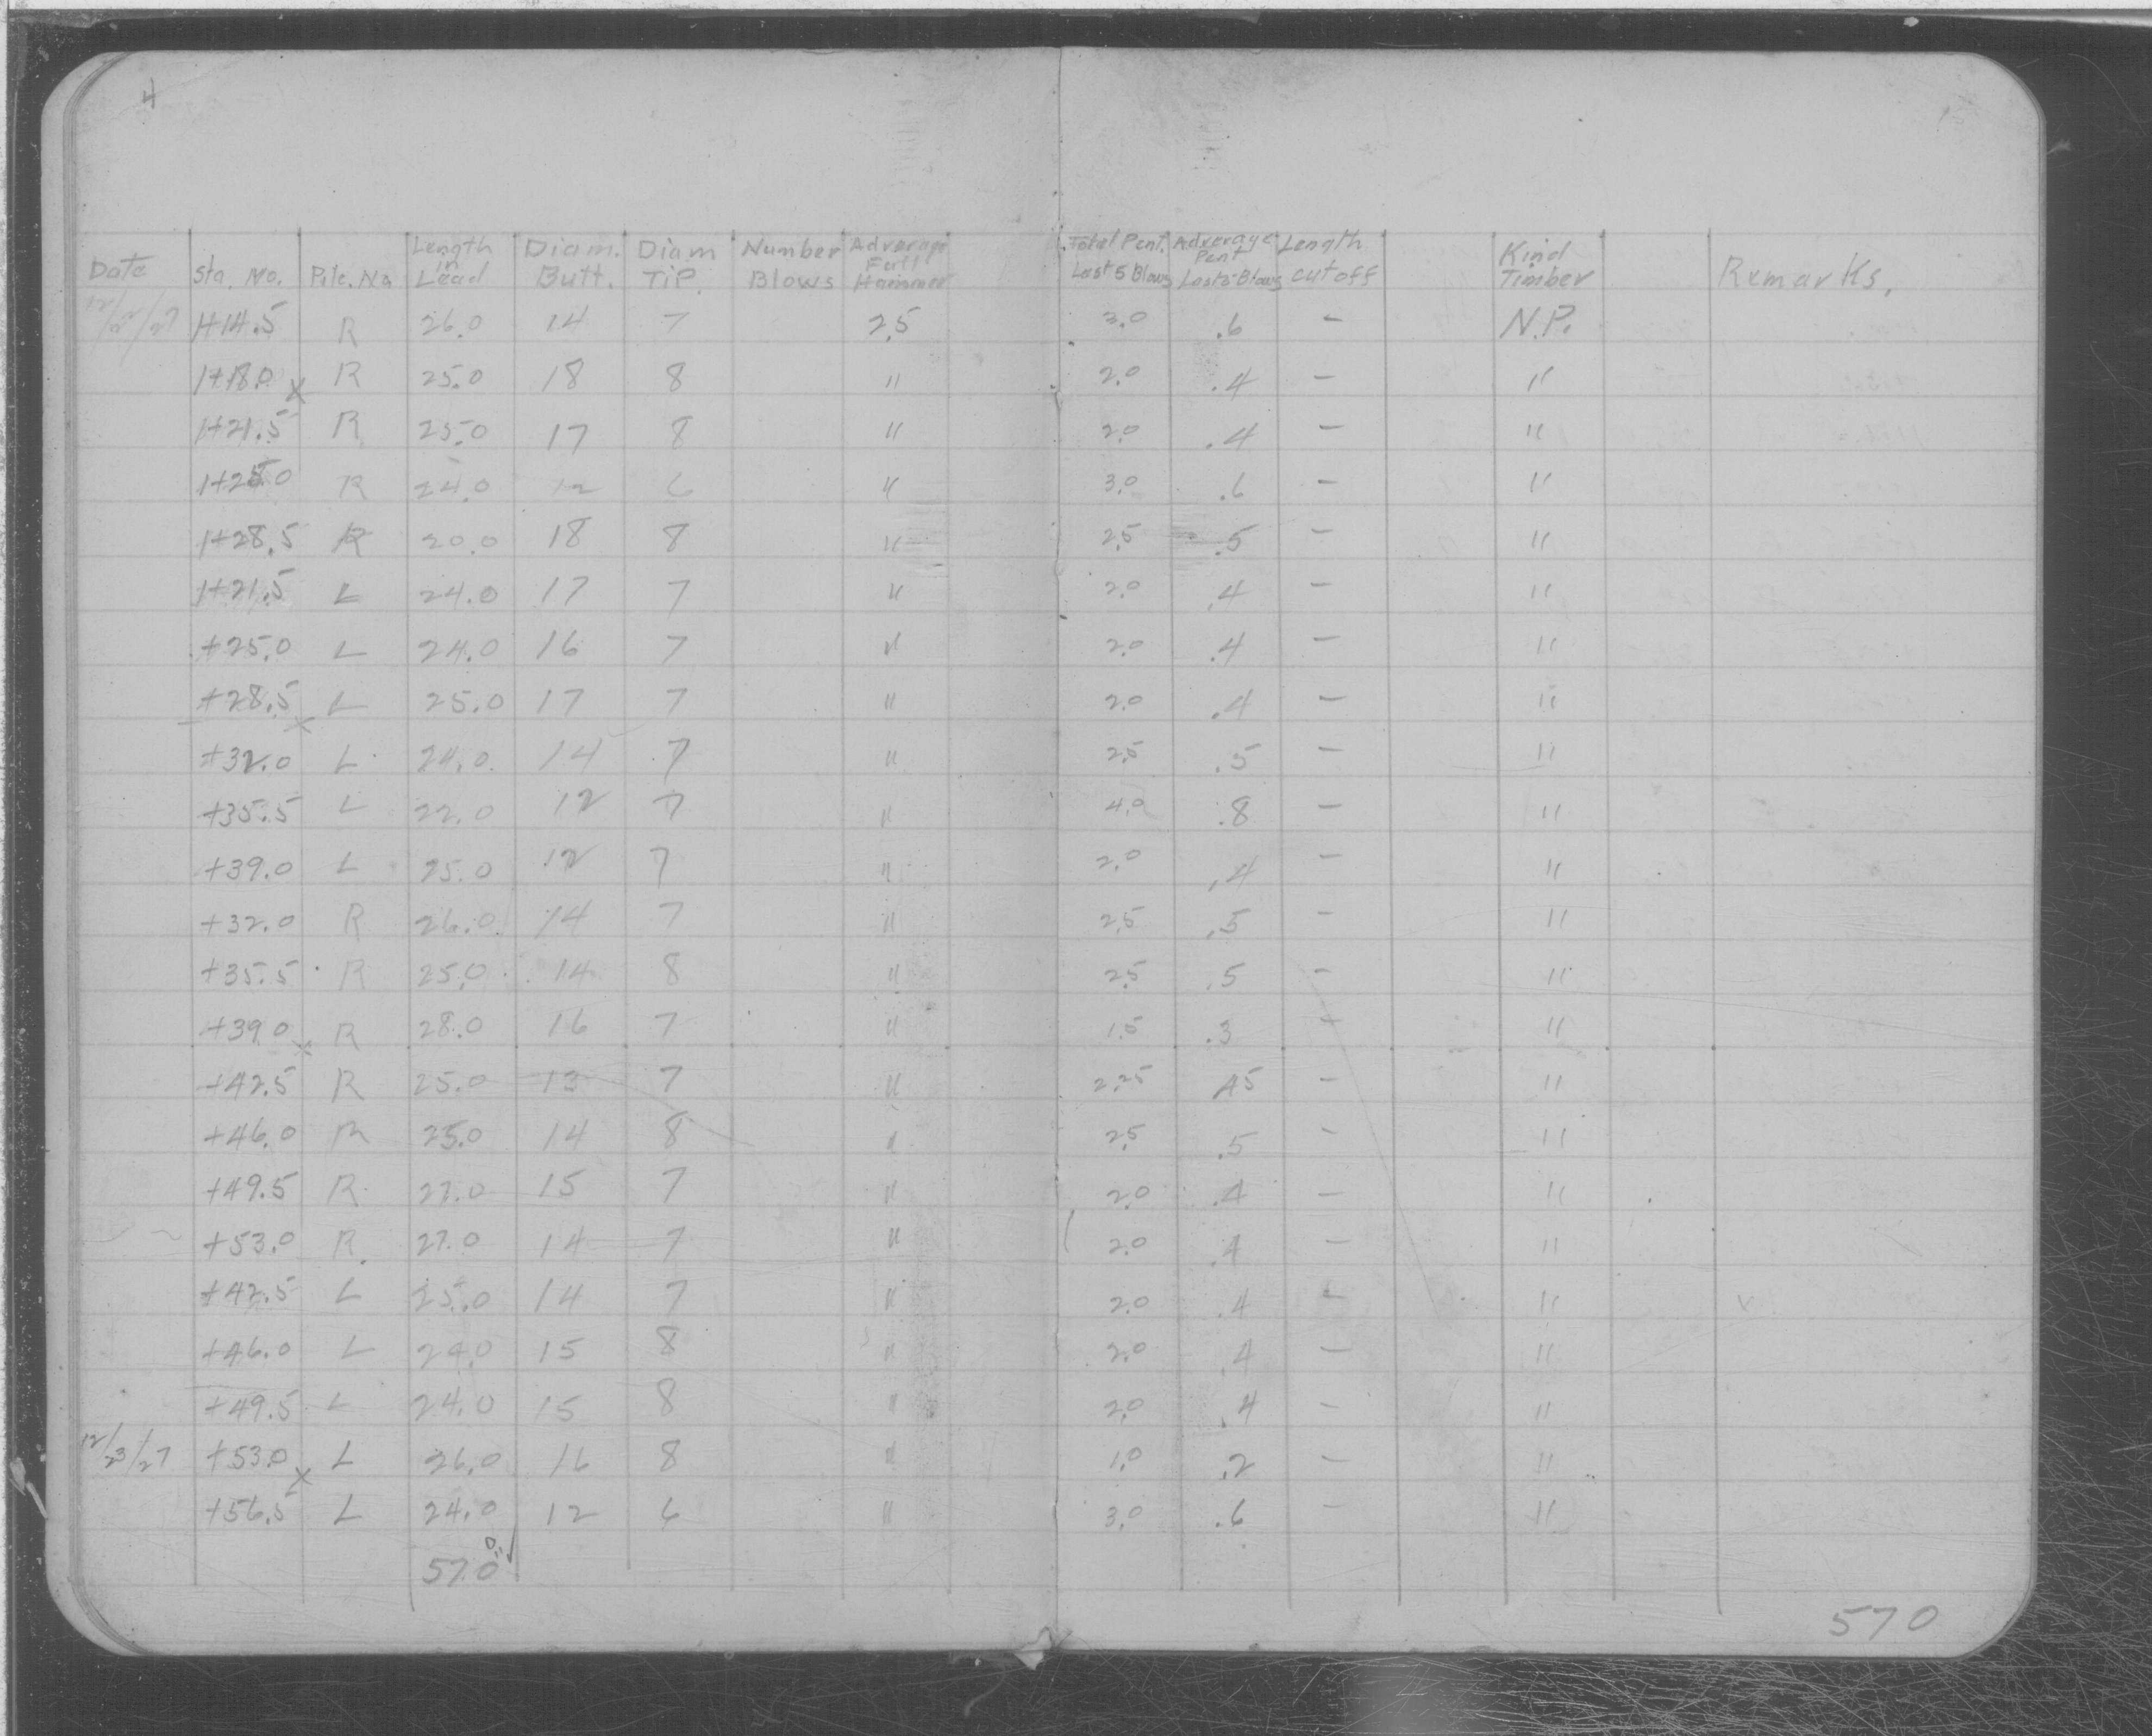 4
Date Sta. No. Pile. No Length in Lead Diam. Butt. Diam TIP. Number Blows Adverage Fall Hammer Total Pent. Last 5 Blows Adverage Pent Last 5 Blows Length cutoff Kind Timber Remarks.
12/22/27 1+14.5 R 26.0 14 7 25 3.0 .6 - N.P.
1+18.0 x R 25.0 18 8 " 2.0 .4 - "
1+21.5 R 25.0 17 8 " 2.0 .4 - "
1+25.0 R 24.0 12 6 " 3.0 .6 - "
1+28.5 R 20.0 18 8 " 2.5 .5 - "
1+21.5 L 24.0 17 7 " 2.0 .4 - "
+25.0 L 24.0 16 7 " 2.0 .4 - "
+28.5 x L 25.0 17 7 " 2.0 .4 - "
+32.0 L 24.0 14 7 " 2.5 .5 - "
+35.5 L 22.0 12 7 " 4.0 .8 - "
+39.0 L 25.0 12 7 " 2.0 .4 - "
+32.0 R 26.0 14 7 " 2.5 .5 - "
+35.5 R 25.0 14 8 " 2.5 .5 - "
+39.0 x R 28.0 16 7 " 1.5 .3 - "
+42.5 R 25.0 13 7 " 2.25 .45 - "
+46.0 R 25.0 14 8 " 2.5 .5 - "
+49.5 R 27.0 15 7 " 2.0 .4 - "
+53.0 R 27.0 14 7 " 2.0 .4 - "
+42.5 L 25.0 14 7 " 2.0 .4 - "
+46.0 L 24.0 15 8 " 2.0 .4 - "
+49.5 L 24.0 15 8 " 2.0 .4 - "
12/23/27 +53.0 x L 26.0 16 8 " 1.0 .2 - "
+56.5 L 24.0 12 6 " 3.0 .6 - "
570
570